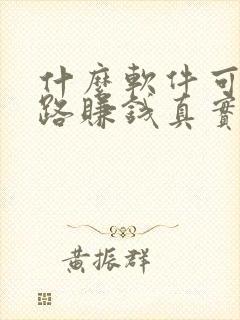 什麼軟件可
路賺錢真實
黃振群